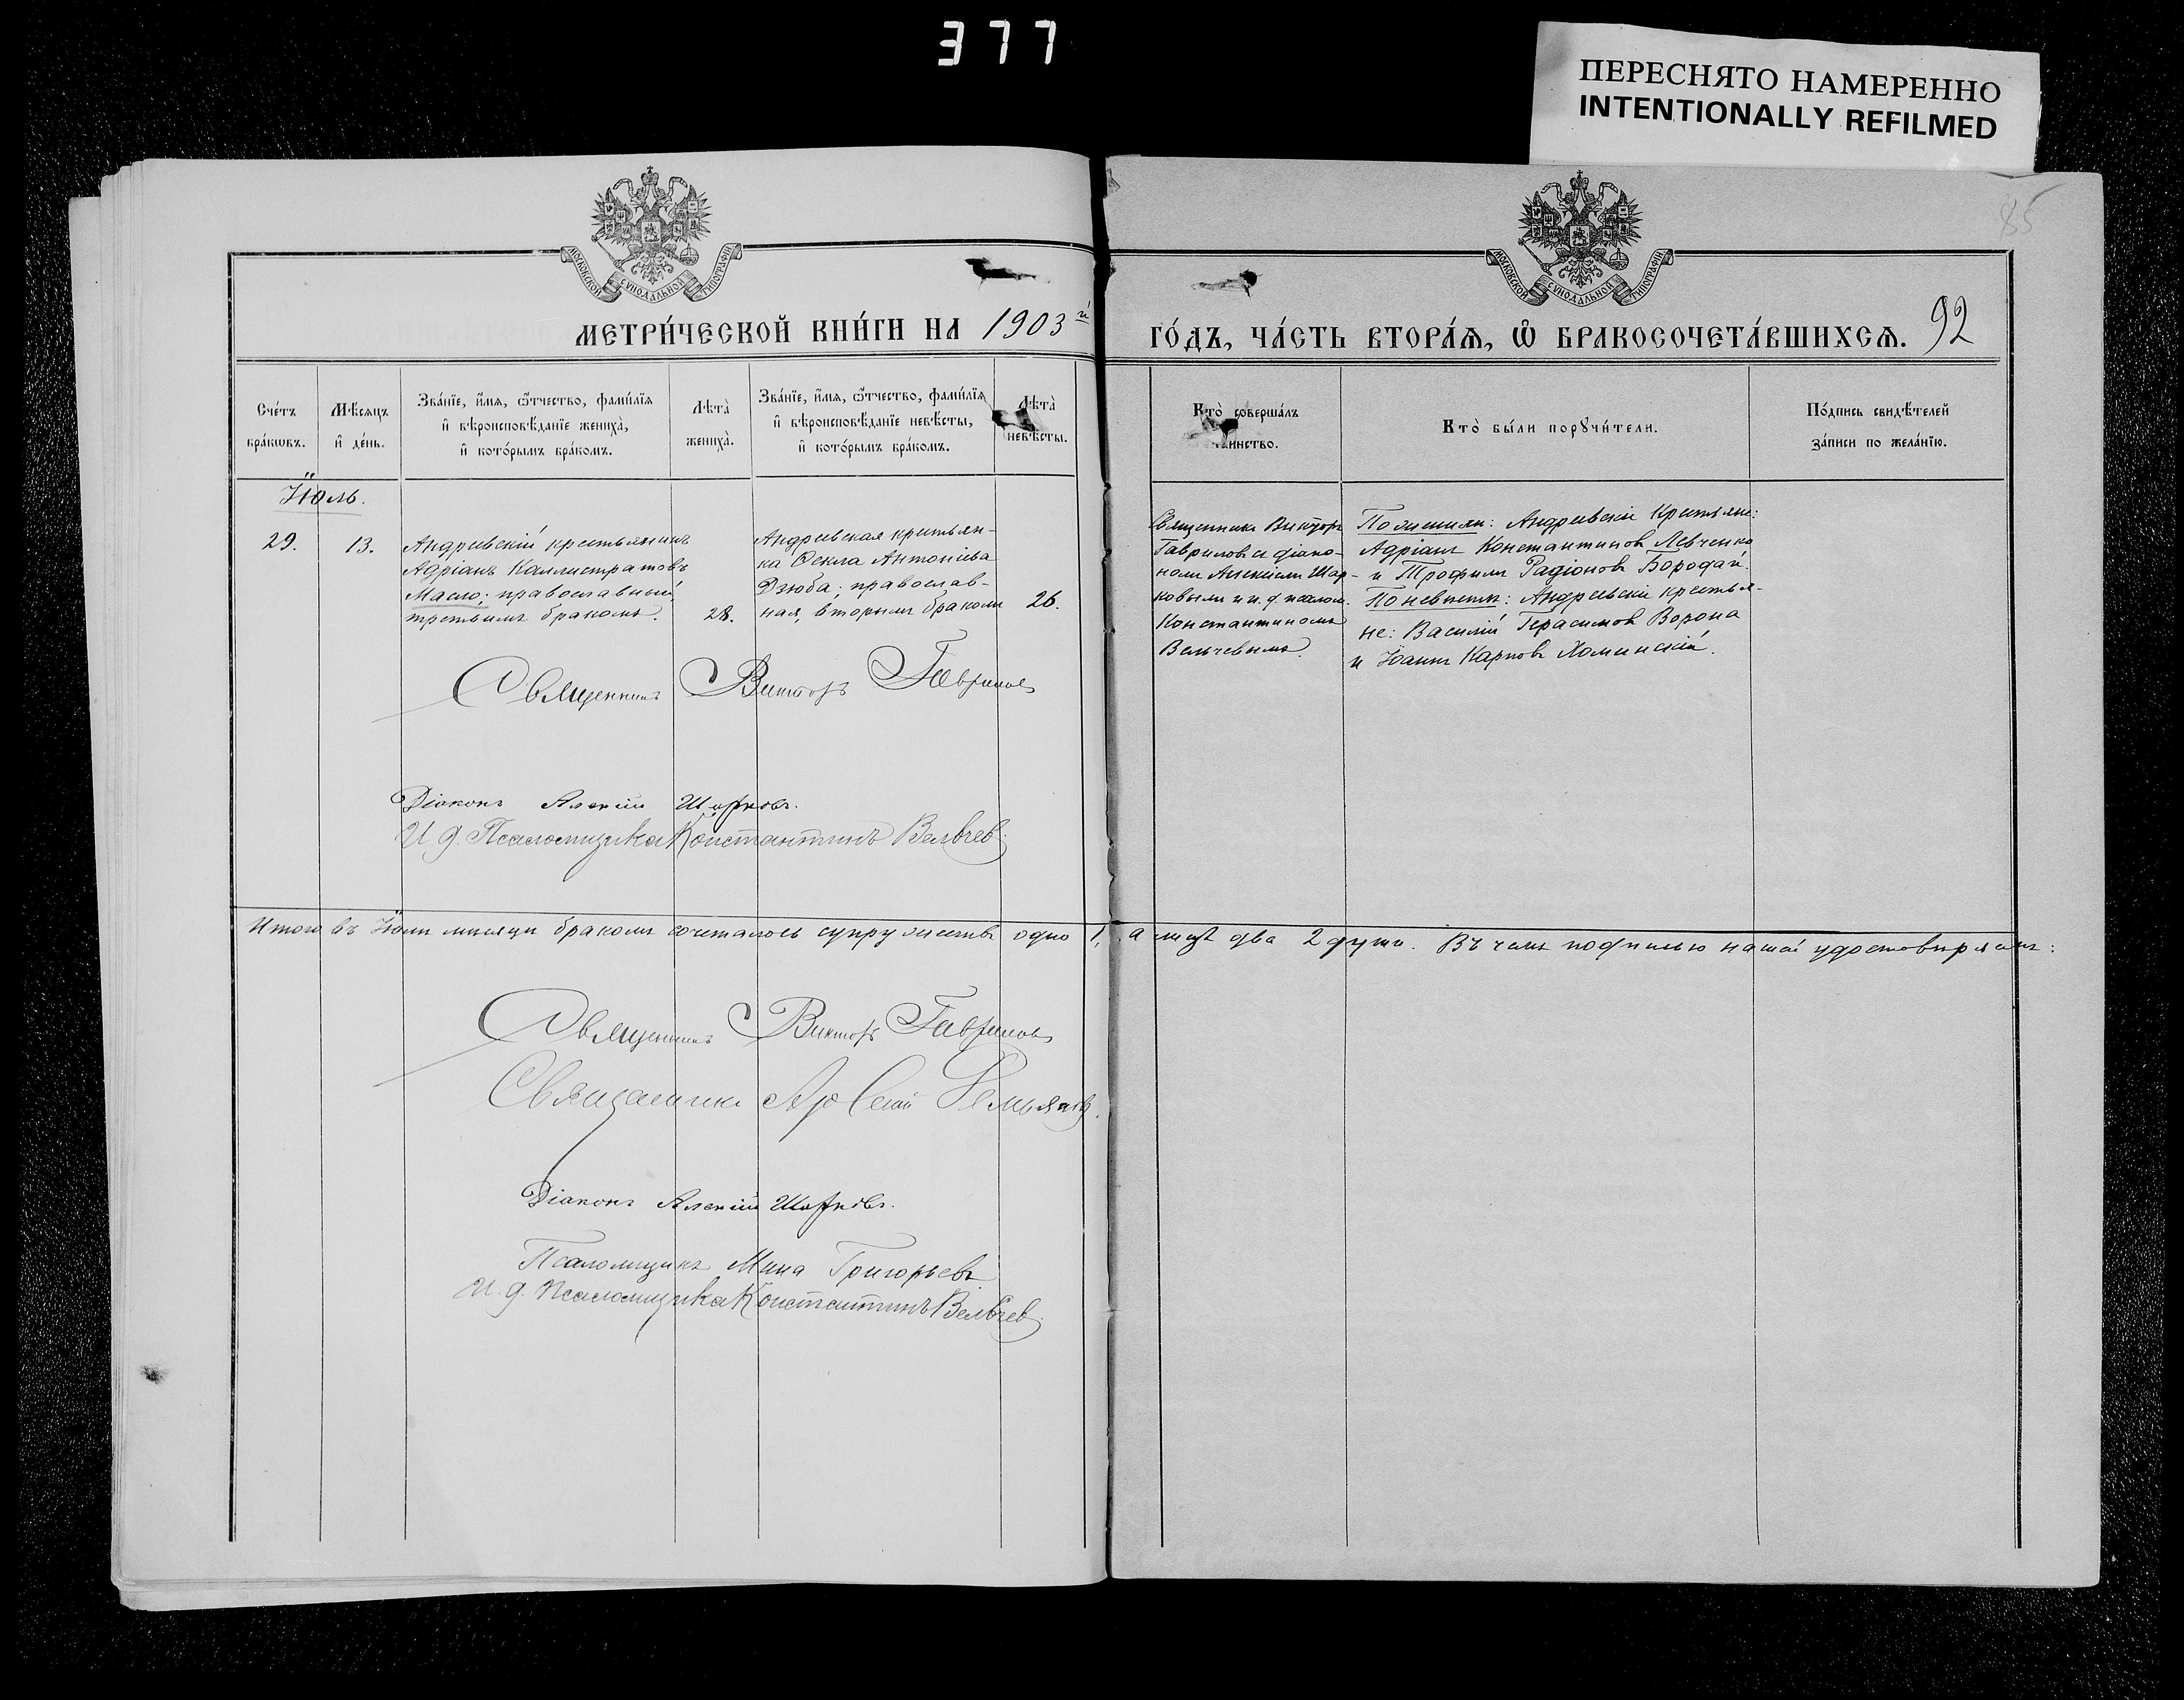 377
ПЕРЕСНЯТО НАМЕРЕННО
INTENTIONALLY REFILMED
МОСКОВСКОЙ СѴНОДАЛЬНОЙ ТИПОГРАФІИ
МОСКОВСКОЙ СѴНОДАЛЬНОЙ ТИПОГРАФІИ
85
МЕТРИ́ЧЕСКОЙ КНИ́ГИ НА 1903й
ГО́ДЪ, ЧА́СТЬ ВТОРА́Ѧ, Ѽ БРАКОСОЧЕТА́ВШИХСѦ. 92
Сче́тъ
бра́кѡвъ.
Мѣ́сѧцъ
и҆ де́нь.
Зва́нїе, и҆́мѧ, ѻ҆́тчество, фами́лїѧ
и҆ вѣроисповѣ́данїе жениха̀,
и҆ кото́рымъ бра́комъ.
Лѣта̀
жениха̀.
Зва́нїе, и҆́мѧ, ѻ҆́тчество, фами́лїѧ
и҆ вѣроисповѣ́данїе невѣ́сты,
и҆ кото́рымъ бра́комъ.
Лѣта̀
невѣ́сты.
Кто̀ соверша́лъ
таинство.
Кто̀ бы́ли порꙋчи́тели.
По́дпись свидѣ́телей
за́писи по жела́нїю.
Іюль.
29.
13.
Андреевскій крестьянинъ
Адріанъ Каллистратовъ
Масло; православный
третьимъ бракомъ.
28.
Андреевская крестьян-
ка Ѳекла Антоніева
Дзюба; православ-
ная, вторымъ бракомъ
26.
Священникъ Викторъ
Гавриловъ съ діако-
номъ Алексіемъ Шар-
ковымъ и и. д. псалом.
Константиномъ
Вельчевымъ.
По женихѣ: Андреевскіе крестьяне:
Адріанъ Константиновъ Левченко
и Трофимъ Радіоновъ Бородай.
По невѣстѣ: Андреевскіе крестья-
не: Василій Герасимовъ Ворона
и Іоаннъ Карповъ Хоминскій.
Священникъ Викторъ Гавриловъ
Діаконъ Алексій Шарковъ.
И. д. Псаломщика Константинъ Вельчев
Итого въ Іюлѣ мѣсяцѣ бракомъ сочеталось супружество одно 1, а лицъ два 2 душъ. Въ чемъ подписью нашей удостовѣряемъ:
Священникъ Викторъ Гавриловъ
Священникъ Арсеній
Діаконъ Алексій Шарковъ.
Псаломщикъ Мина Григорьевъ
И. д. Псаломщика Константинъ Вельчев